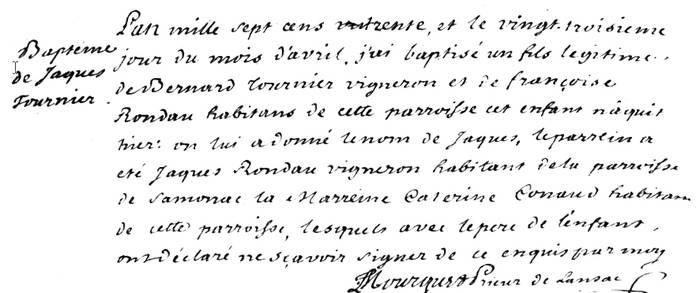 Baptême
de Jaques
Tournier.
L'an mille sept cens trente, et le vingt-troisieme
jour du mois d'avril, j'ai baptisé un fils legitime
de Bernard Tournier vigneron et de françoise
Rondau habitans de cette parroisse cet enfant nâquit
hier: on lui a donné le nom de Jaques, le parrein a
eté Jaques Rondau vigneron habitant de la parroisse
de Samonac la Marreine Caterine Conaud habitan
de cette parroisse, lesquels avec le pere de l'enfant
ont déclaré ne sçavoir signer de ce enquis par moy
Prieur de Lansac